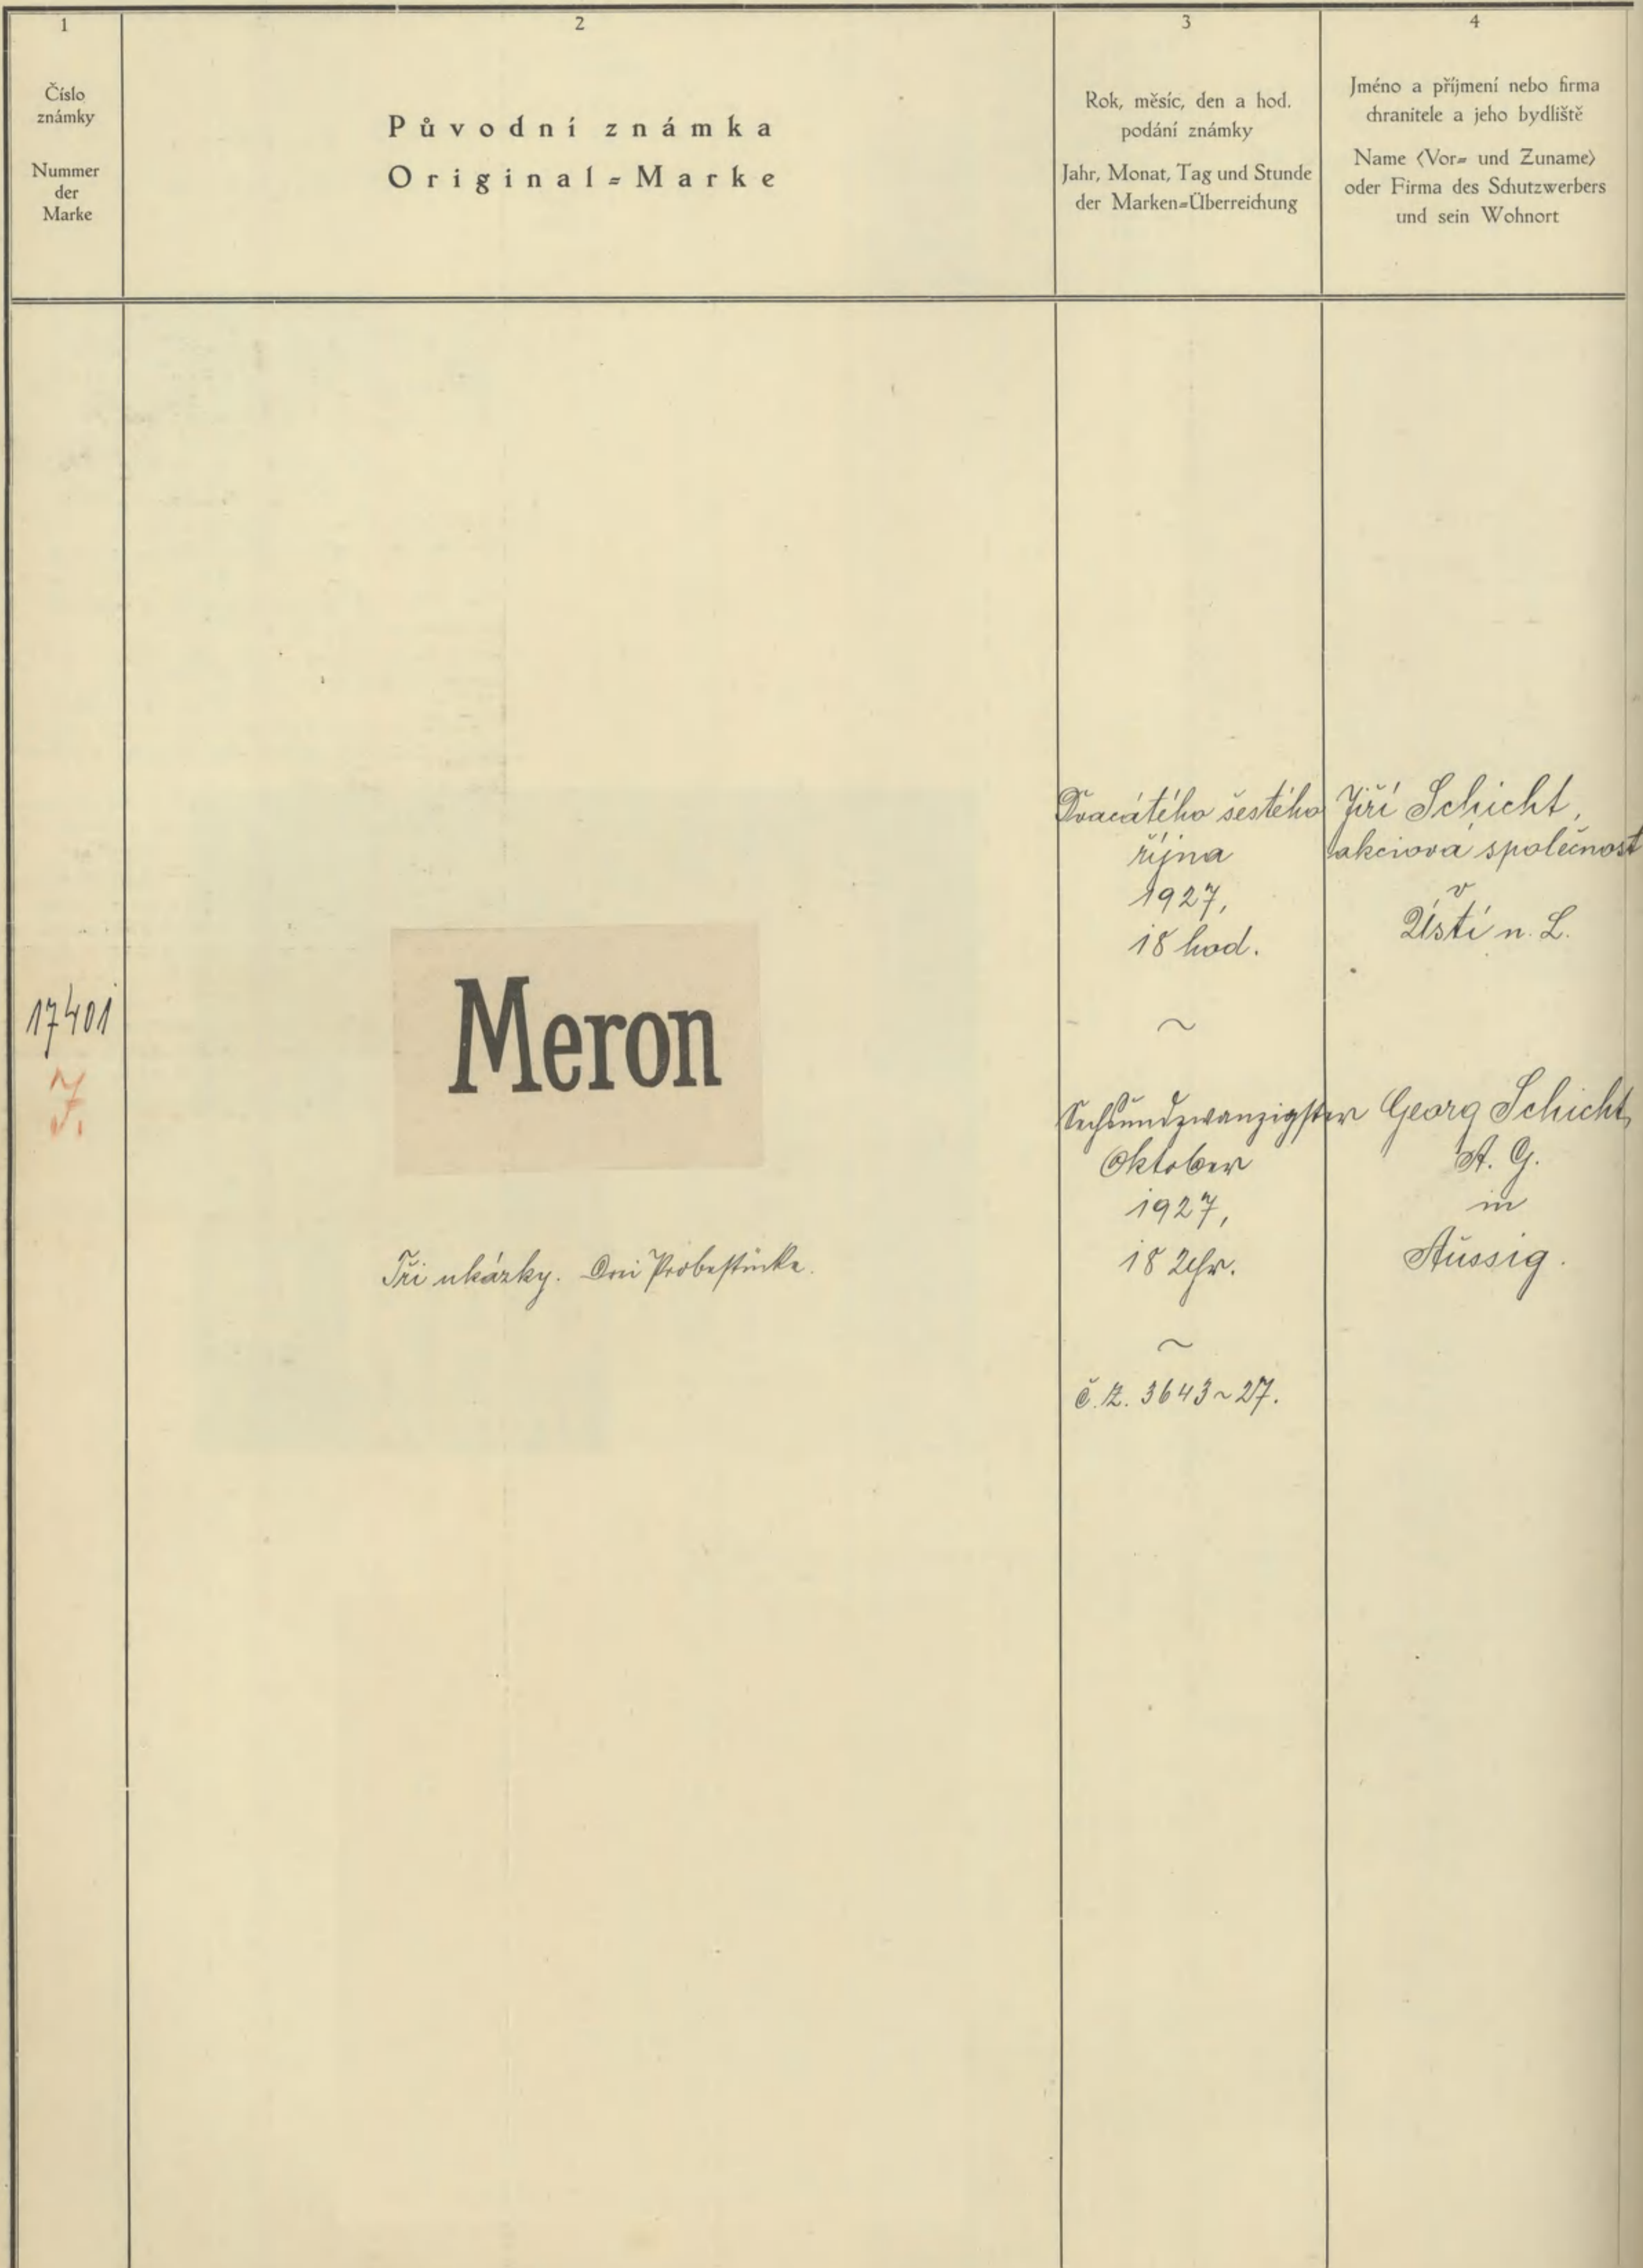 1
Číslo
známky
Nummer
der
Marke
2
Původní známka
Original=Marke
3
Rok, měsíc, den a hod.
podání známky
Jahr, Monat, Tag und Stunde
der Marken=Überreichung
4
Jméno a příjmení nebo firma
chranitele a jeho bydliště
Name (Vor= und Zuname)
oder Firma des Schutzwerbers
und sein Wohnort
17401
Meron
Tři ukázky. Drei Probestücke.
Dvacátého šestého
října
1927,
18 hod.
~
Sechsundzwanzigster
Oktober
1927,
18 Uhr.
~
č. z. 3643~27.
Jiří Schicht,
akciová společnost
v
Ústí n. L.
Georg Schicht,
A. G.
in
Aussig.